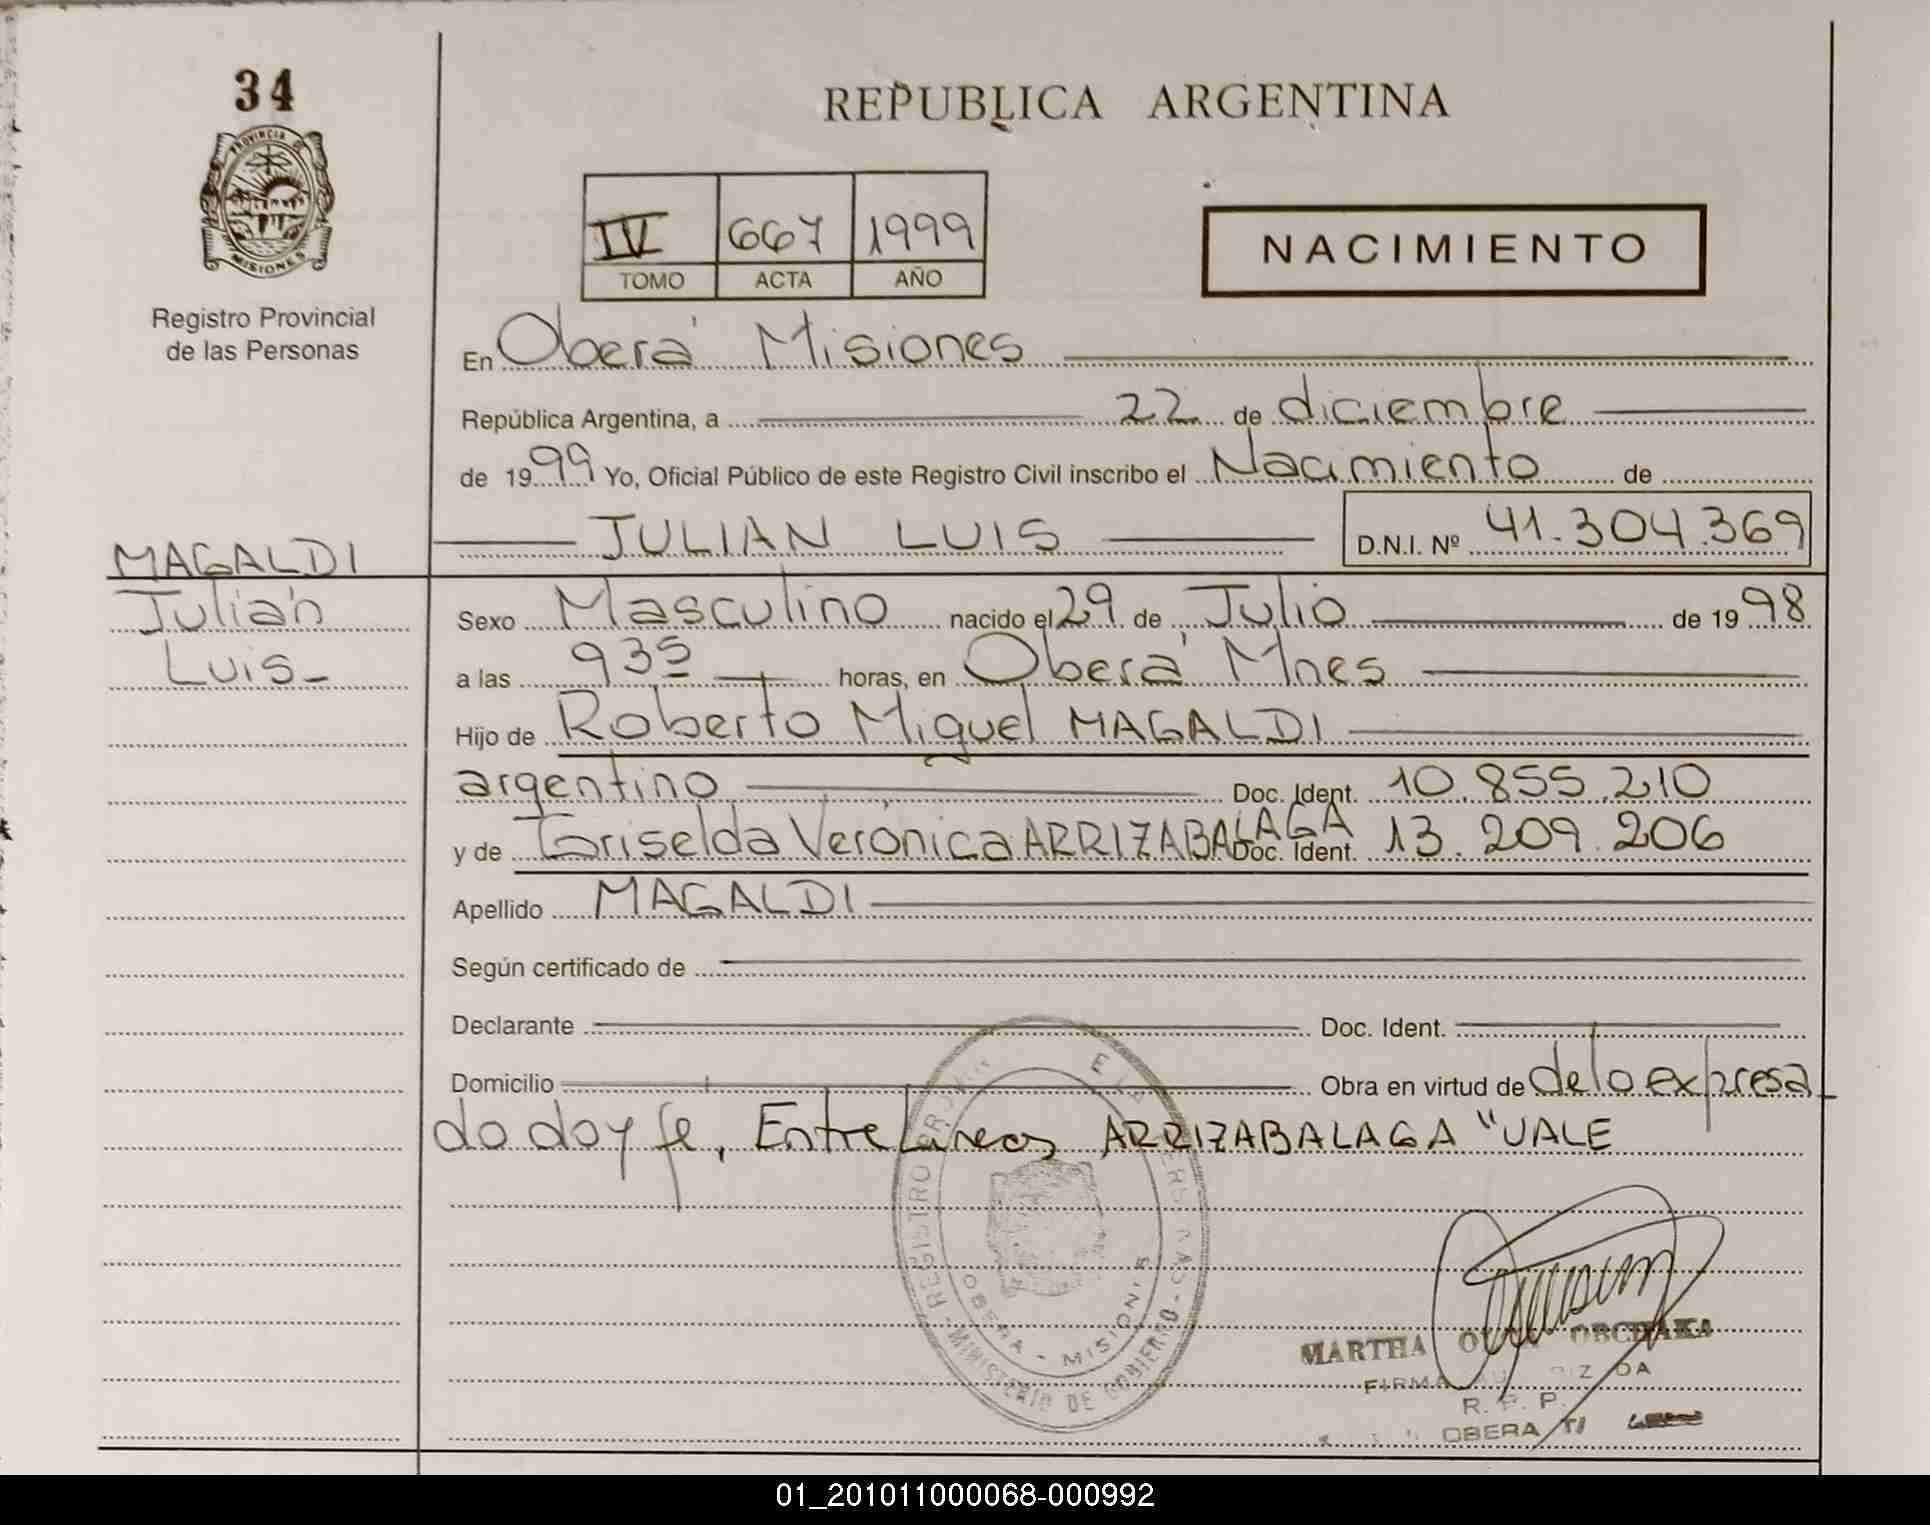 34
PROVINCIA DE
MISIONES
Registro Provincial
de las Personas
REPUBLICA ARGENTINA
IV 667 1999
TOMO ACTA AÑO
NACIMIENTO
En Oberá Misiones
República Argentina, a 22 de diciembre
de 1999 Yo, Oficial Público de este Registro Civil inscribo el Nacimiento de
JULIAN LUIS D.N.I. Nº 41.304.369
MAGALDI
Julián
Luis
Sexo Masculino nacido el 29 de Julio de 1998
a las 935 horas, en Oberá Mnes
Hijo de Roberto Miguel MAGALDI
argentino Doc. Ident. 10.855.210
y de Griselda Verónica ARRIZABALAGA Doc. Ident. 13.209.206
Apellido MAGALDI
Según certificado de
Declarante Doc. Ident.
Domicilio Obra en virtud de de lo expresa
do doy fe, Entrelíneas ARRIZABALAGA "VALE
REGISTRO
MINISTERIO DE GOBIERNO
OBERA - MISIONES
MARTHA
FIRMA
R. P. P.
OBERA
01_201011000068-000992